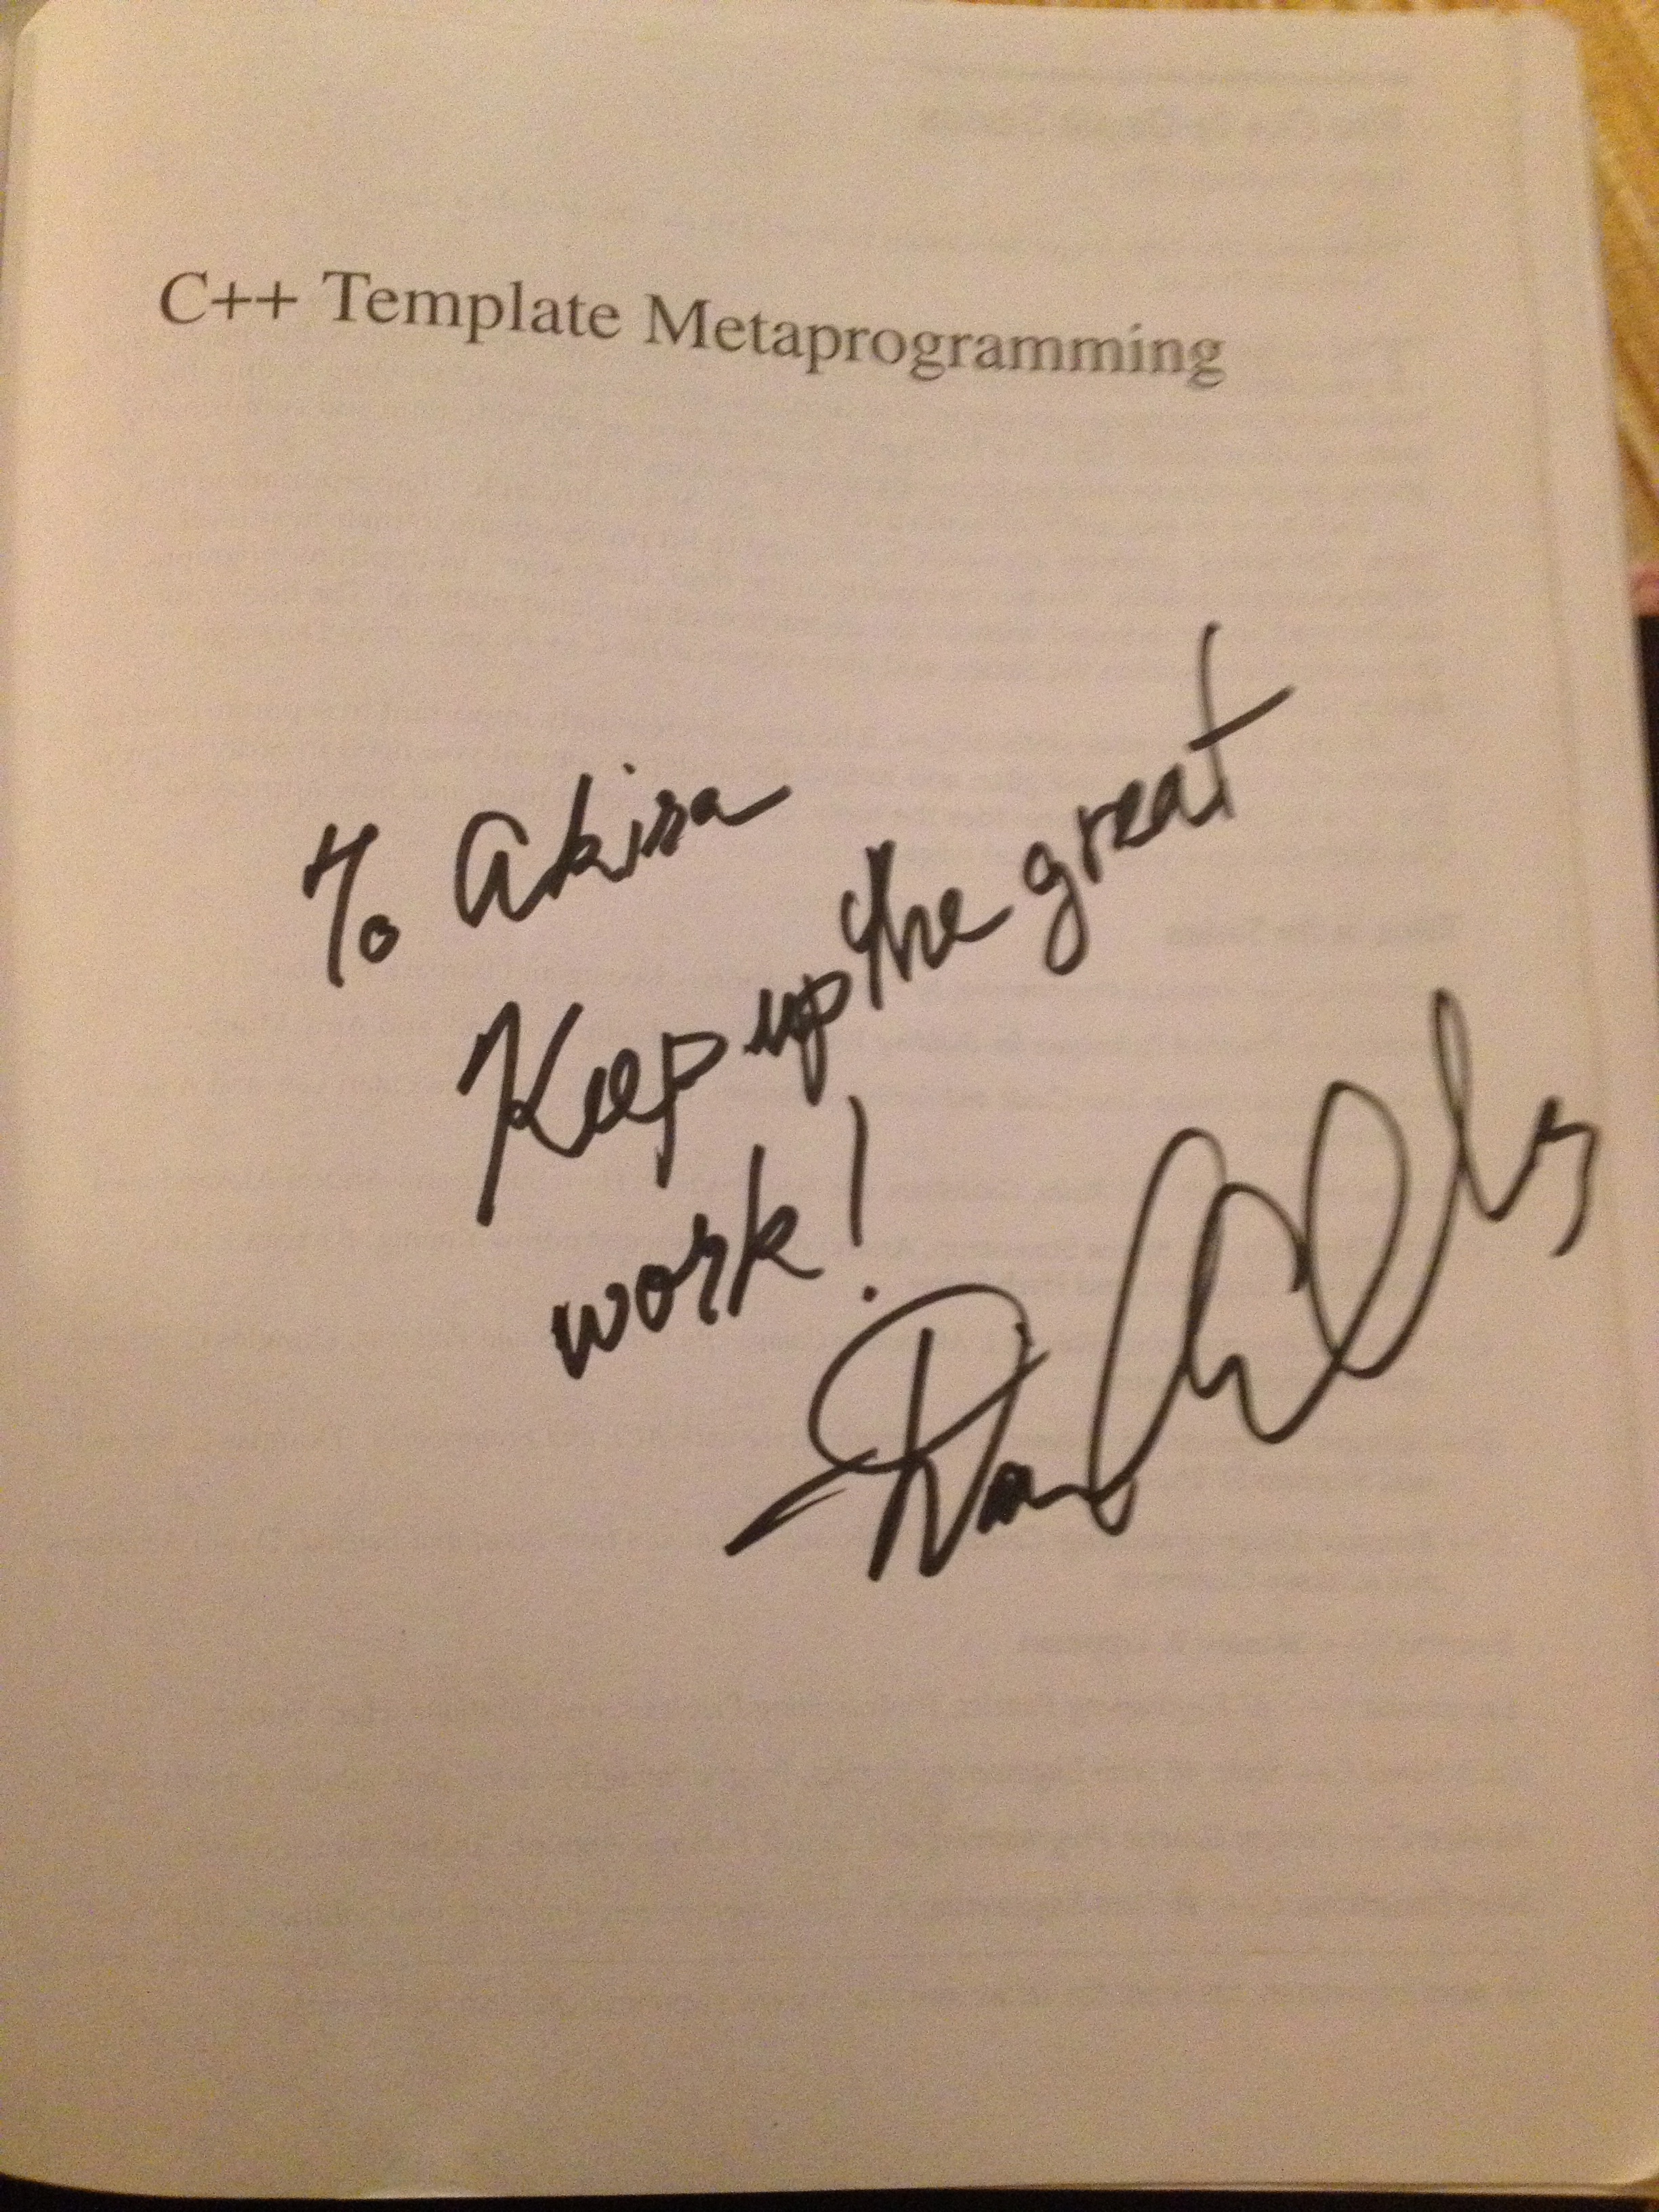 C++ Template Metaprogramming
To Akira
Keep up the great
work!